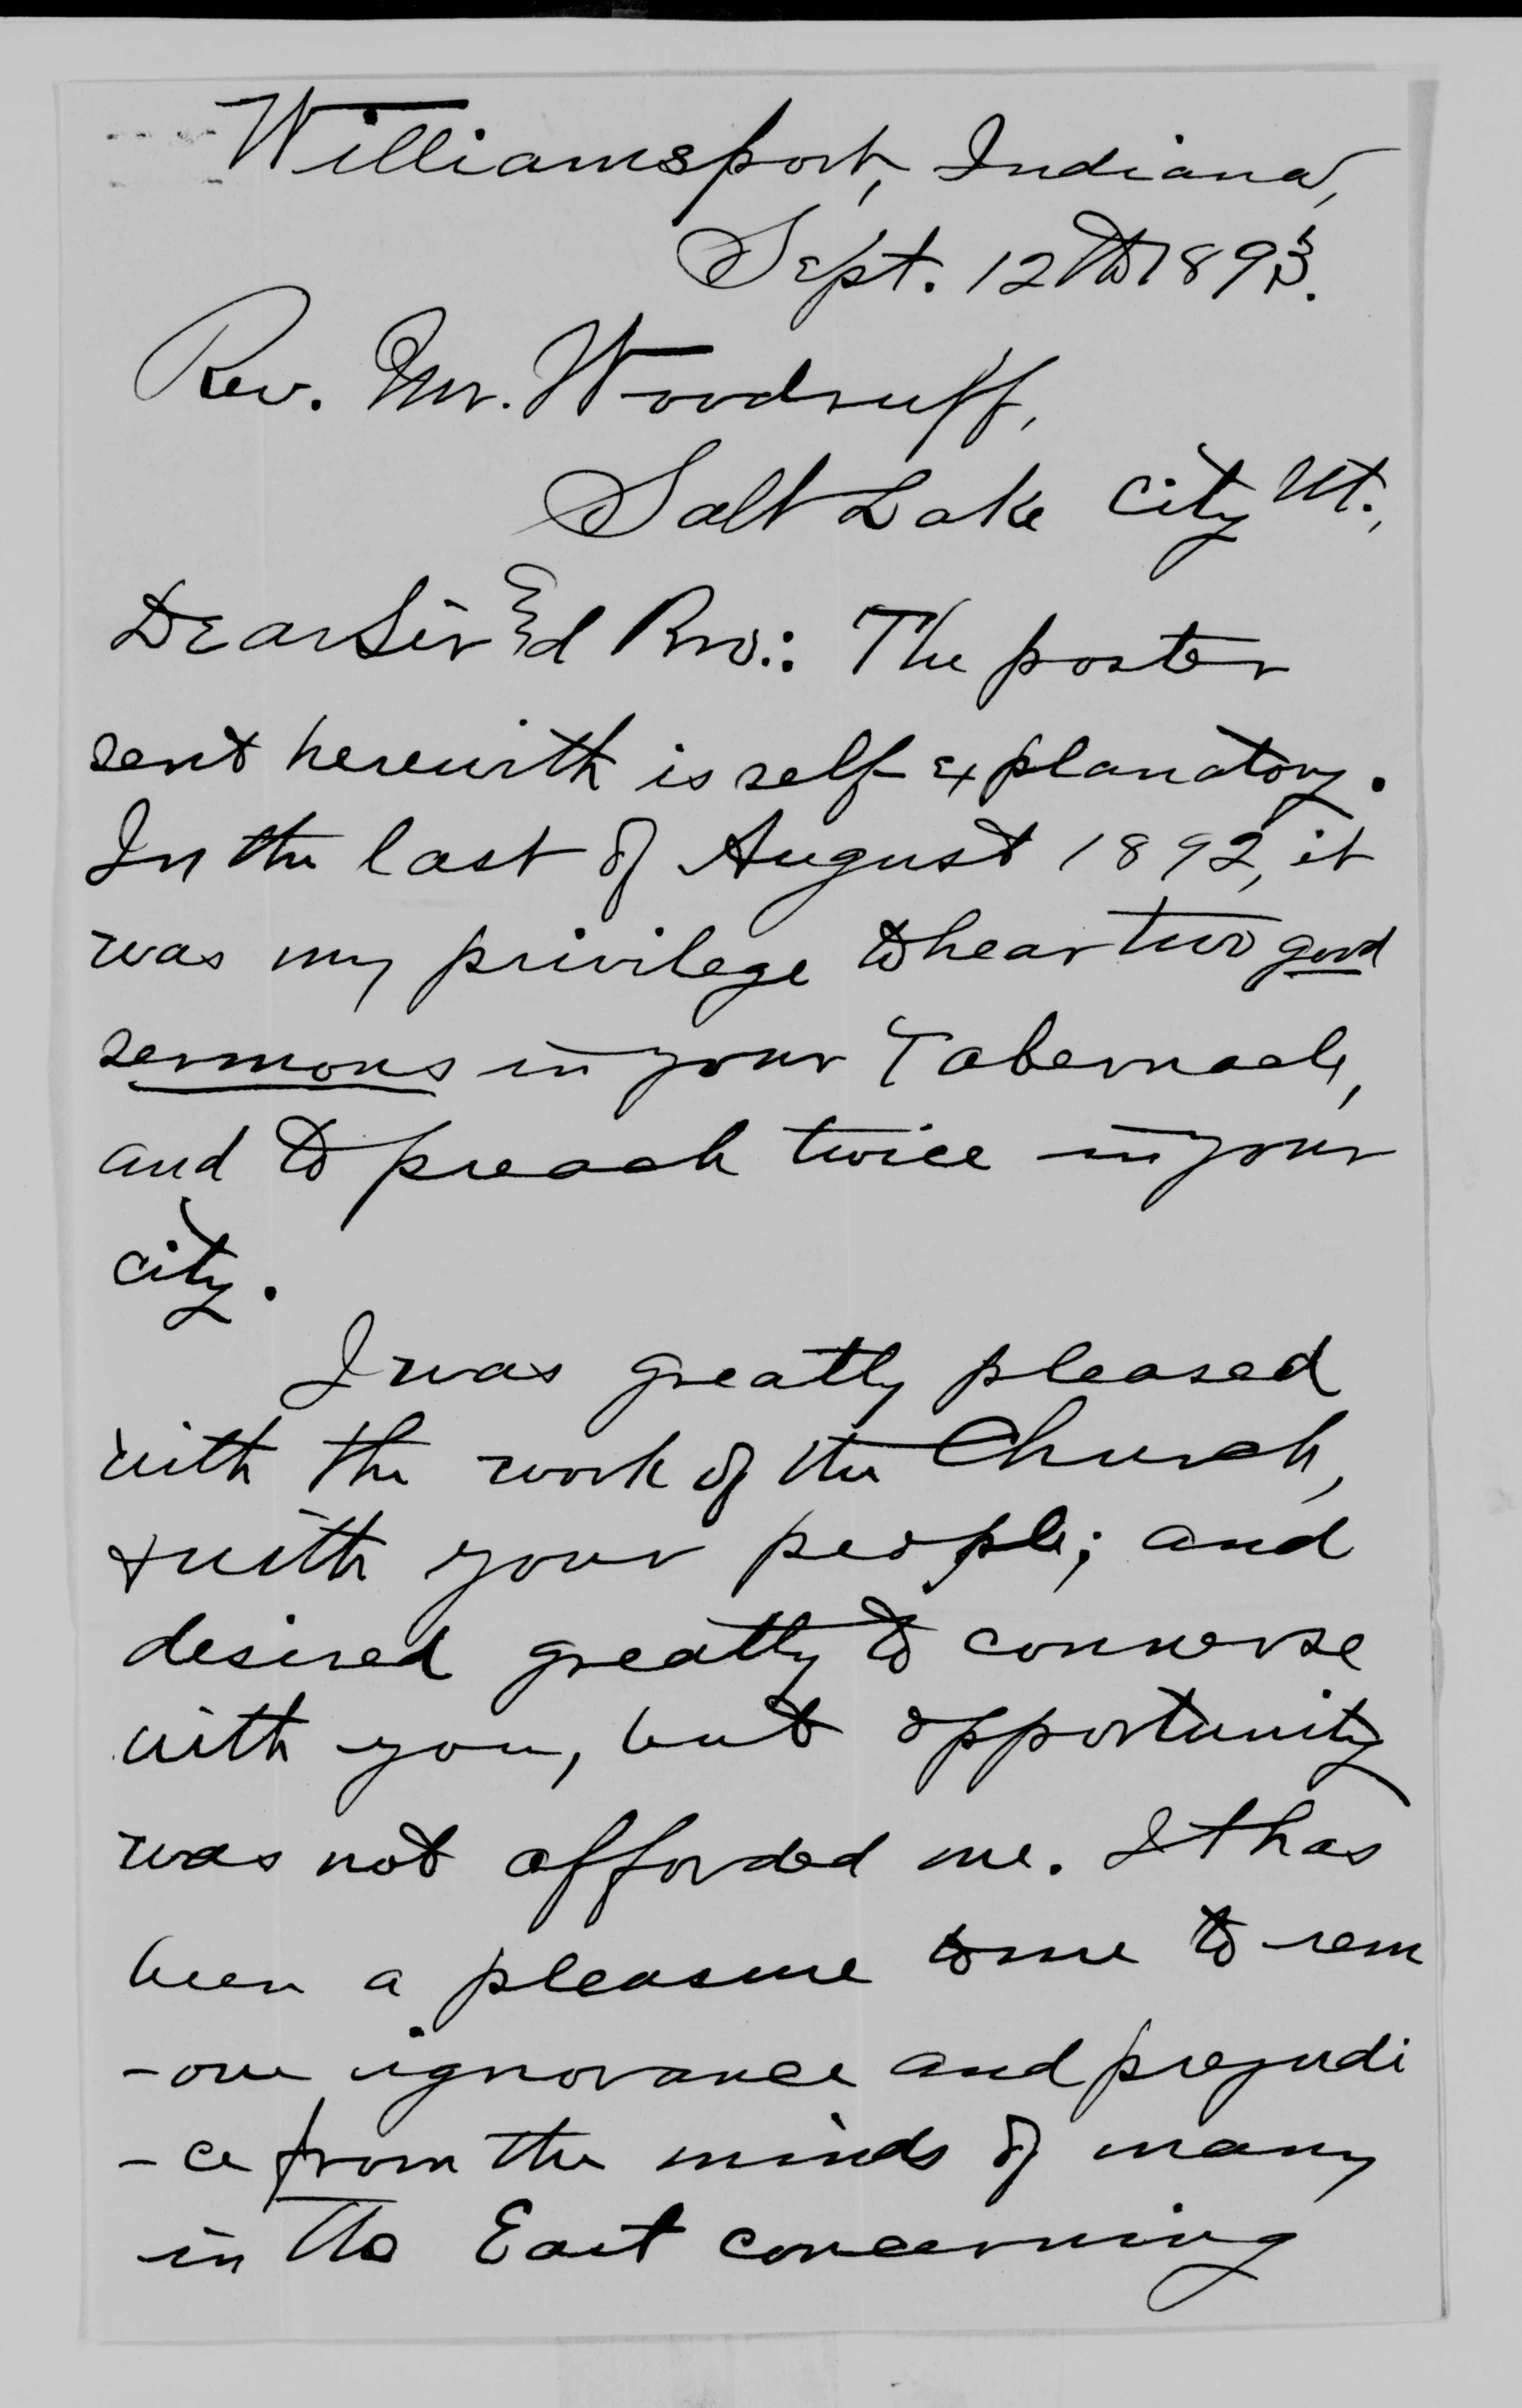 Williamsport, Indiana,
Sept. 12th 1893.
Rev. Mr. Woodruff,
Salt Lake City Ut.,
Dear Sir & Bro.: The poster
sent herewith is self explanatory.
In the last of August 1892, it
was my privilege to hear two good
sermons in your Tabernacle,
and to preach twice in your
city.
I was greatly pleased
with the work of the Church,
& with your people; and
desired greatly to converse
with you, but opportunity
was not afforded me. It has
been a pleasure to me to rem
-ove ignorance and prejudi
-ce from the minds of many
in the East concerning